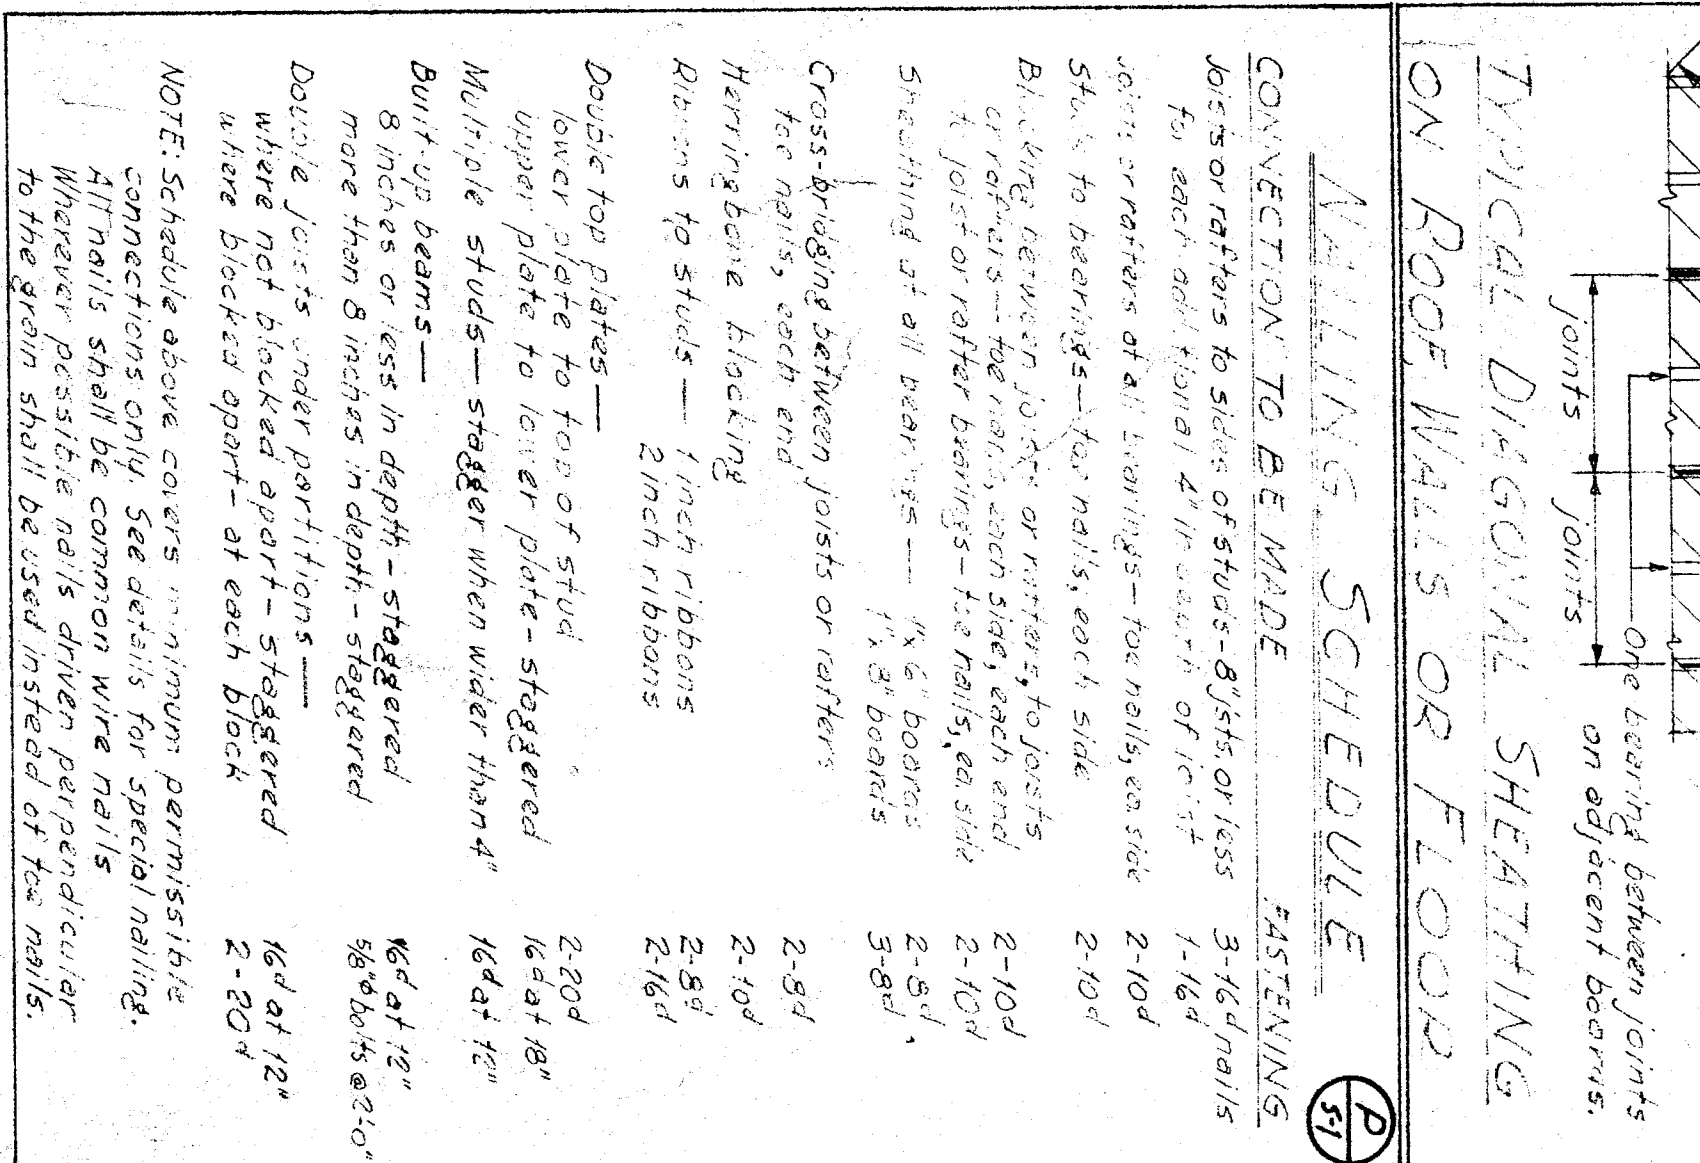 joints
joints
One bearing between joints
on adjacent boards.
TYPICAL DIAGONAL SHEATHING
ON ROOF, WALLS OR FLOOR
NAILING SCHEDULE
P
S-1
CONNECTION TO BE MADE FASTENING
Joists or rafters to sides of studs-8"jsts. or less 3-16d nails
for each additional 4" in depth of joist 1-16d
Joists or rafters at all bearings-toe nails, ea side 2-10d
Studs to bearings-toe nails, each side 2-10d
Blocking between joists or rafters, to joists
or rafters-toe nails, each side, each end 2-10d
to joist or rafter bearings-toe nails, ea. side 2-10d
Sheathing at all bearings- 1"x6" boards 2-8d
1"x8" boards 3-8d
Cross-bridging between joists or rafters
toe nails, each end 2-8d
Herringbone blocking 2-10d
Ribbons to studs- 1 inch ribbons 2-8d
2 inch ribbons 2-16d
Double top plates-
lower plate to top of stud 2-20d
upper plate to lower plate-staggered 16d at 18"
Multiple studs-stagger when wider than 4" 16d at 12"
Built-up beams-
8 inches or less in depth-staggered 16d at 12"
more than 8 inches in depth-staggered 5/8"ø bolts @ 2'-0"
Double joists under partitions-
where not blocked apart-staggered 16d at 12"
where blocked apart-at each block 2-20d
NOTE: Schedule above covers minimum permissible
connections only. See details for special nailing.
All nails shall be common wire nails
Wherever possible nails driven perpendicular
to the grain shall be used instead of toe nails.